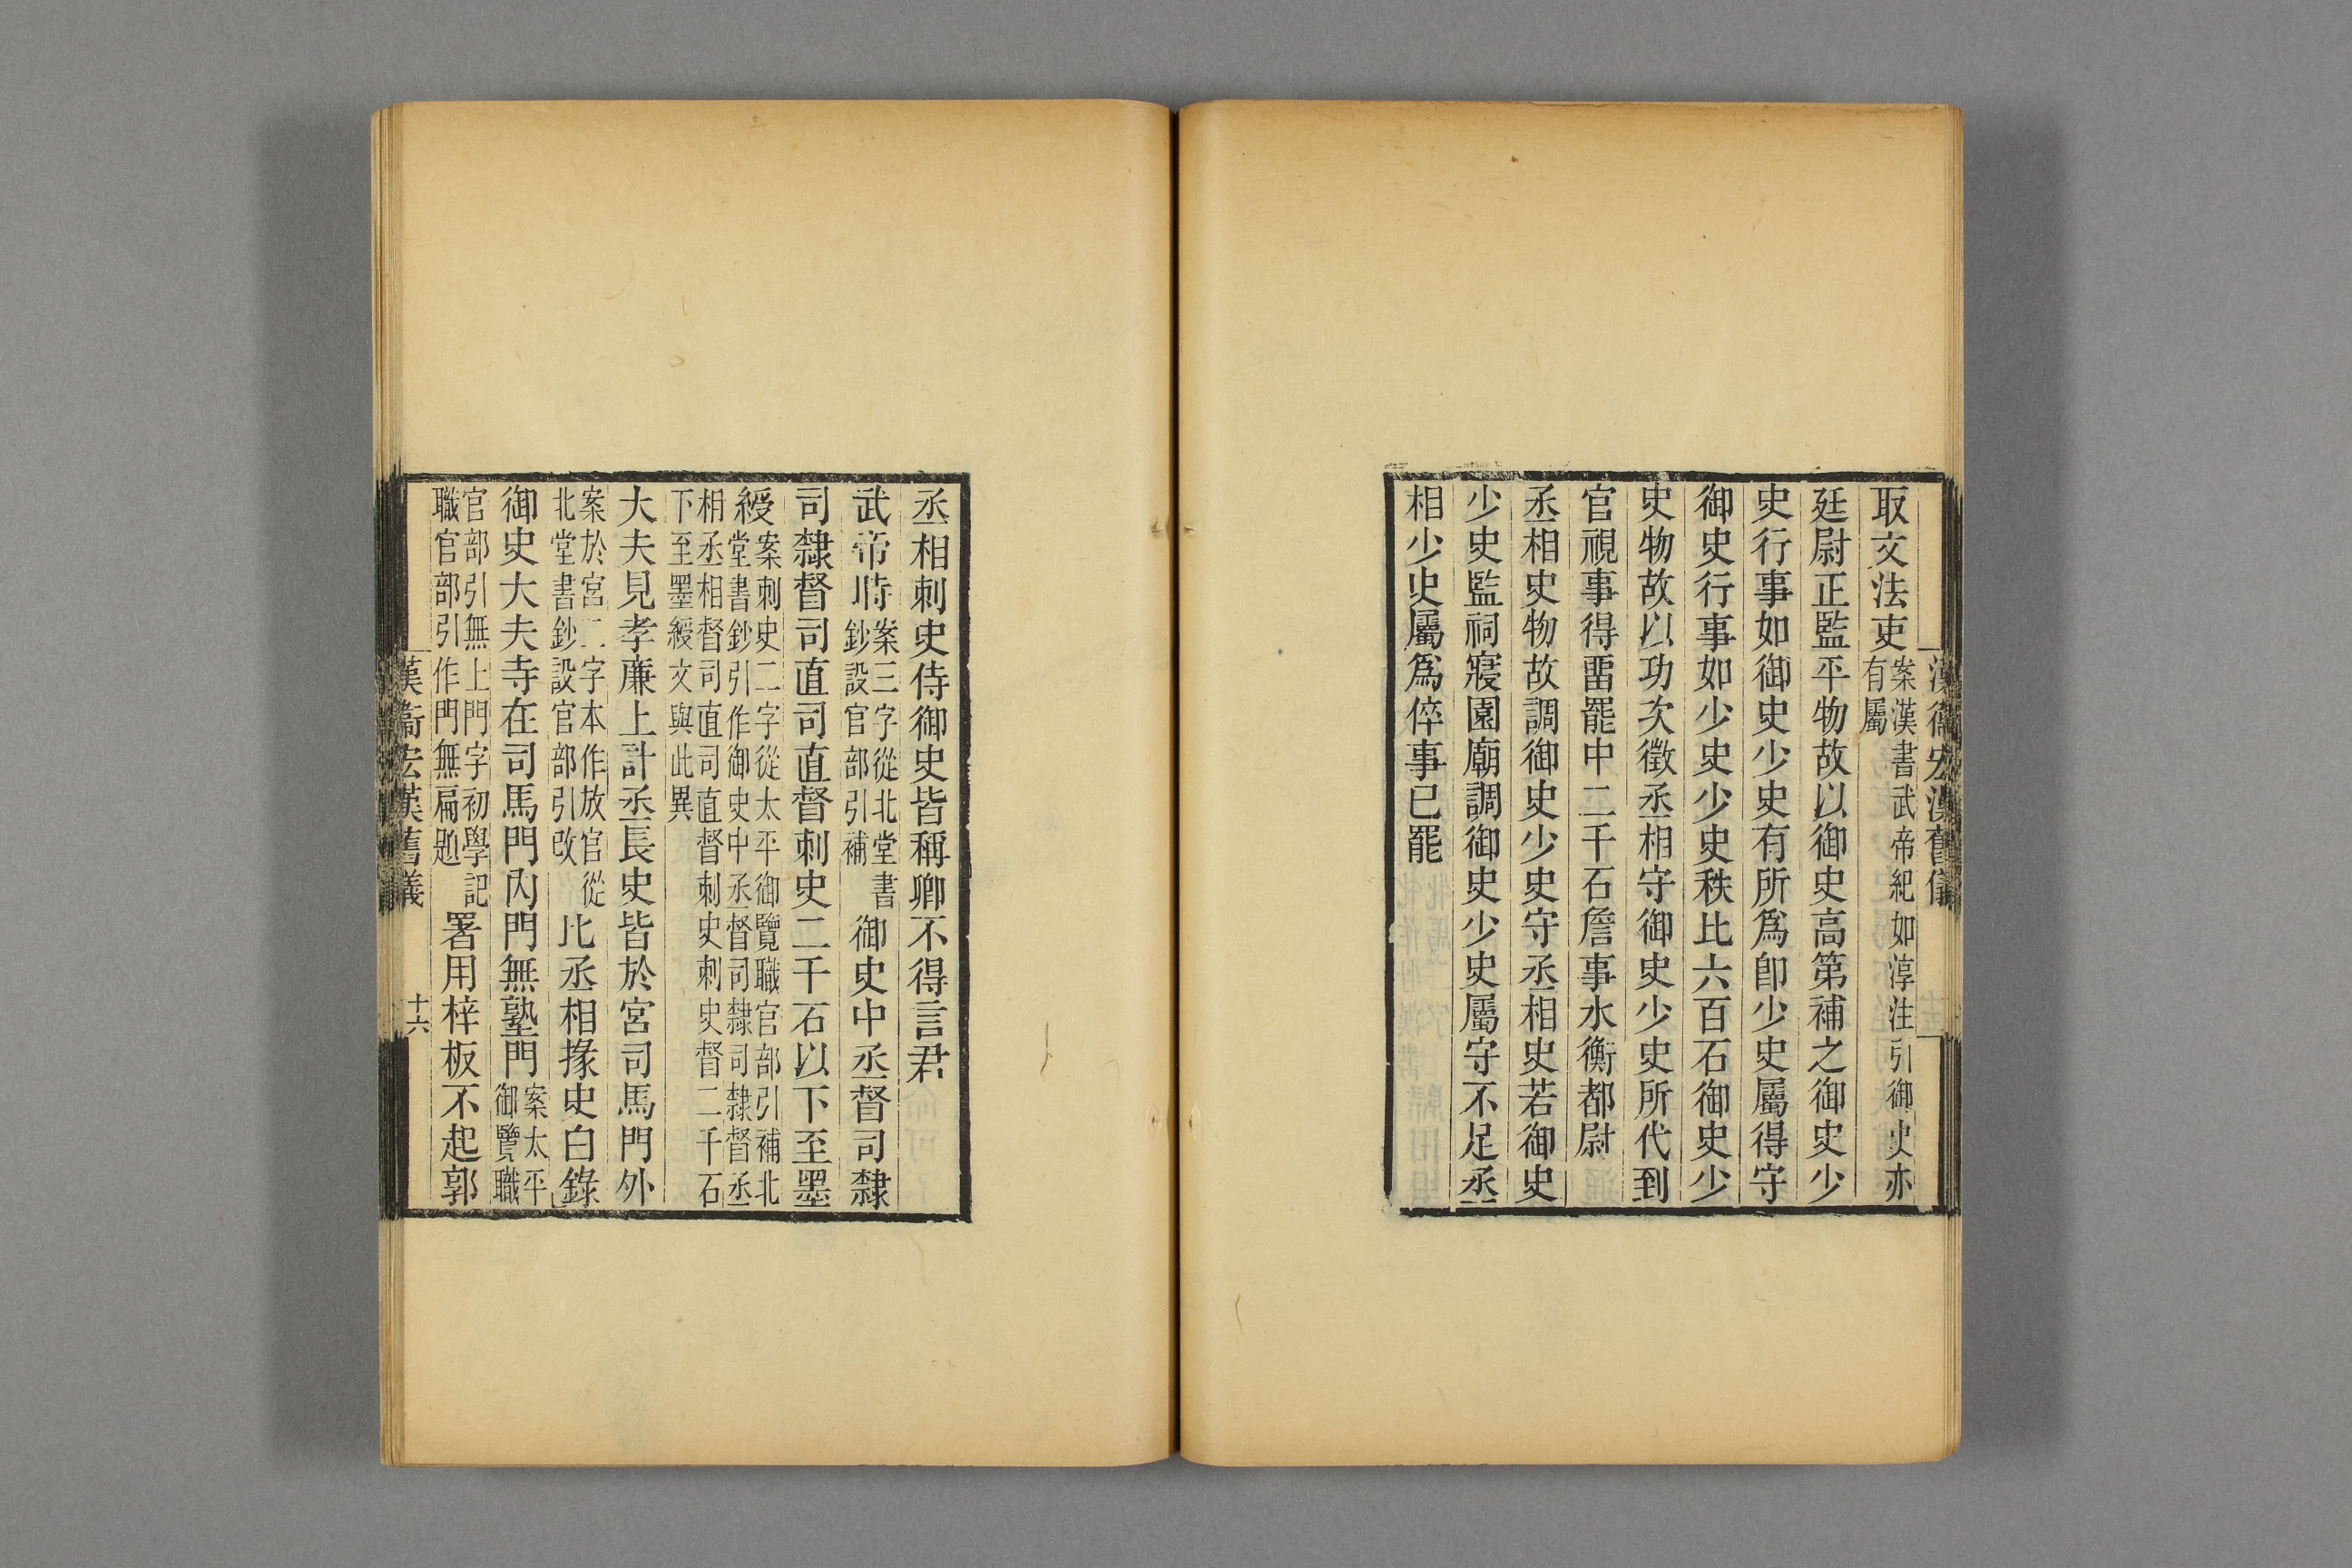 漢衛宏漢舊儀
取文法吏案漢書武帝紀如淳注引御史亦有屬
廷尉正監平物故以御史高第補之御史少
史行事如御史少史有所爲卽少史屬得守
御史行事如少史少史秩比六百石御史少
史物故以功次徵丞相守御史少史所代到
官視事得畱罷中二千石詹事水衡都尉
丞相史物故調御史少史守丞相史若御史
少史監祠寢園廟調御史少史屬守不足丞
相少史屬爲倅事已罷
丞相刺史侍御史皆稱卿不得言君
武帝時案三字從北堂書鈔設官部引補御史中丞督司隸
司隸督司直司直督刺史二千石以下至墨
綬案刺史二字從太平御覽職官部引補北堂書鈔引作御史中丞督司隸司隸督丞
相丞相督司直司直督刺史刺史督二千石下至墨綬文與此異
大夫見孝廉上計丞長史皆於宮司馬門外
案於宮二字本作放官從北堂書鈔設官部引改比丞相掾史白錄
御史大夫寺在司馬門內門無塾門案太平御覽職
官部引無上門字初學記職官部引作門無扁題署用梓板不起郭
漢衛宏漢舊儀
十六